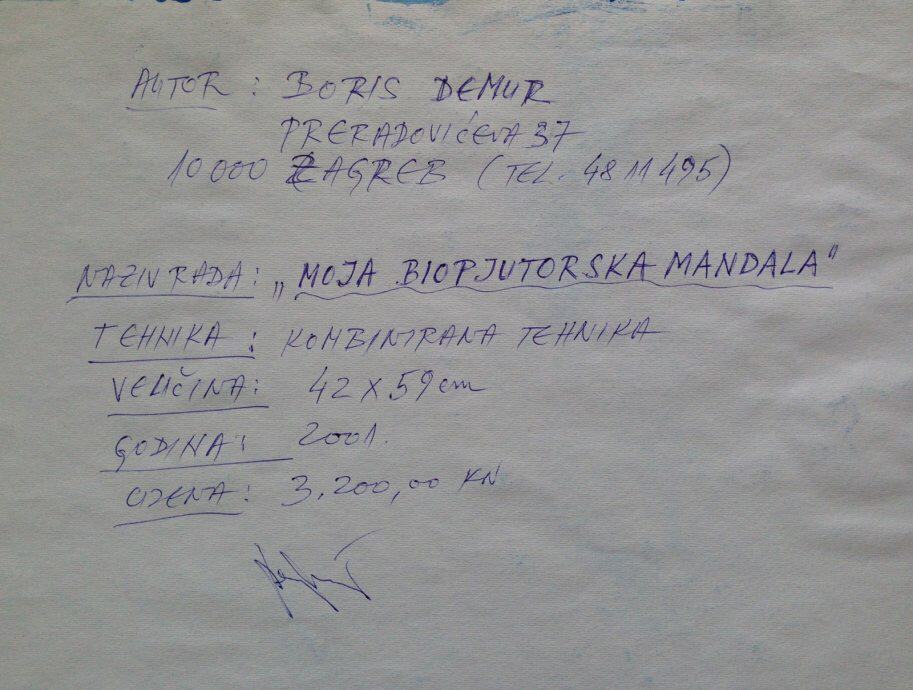 AUTOR : BORIS DEMUR
PRERADOVIĆEVA 37
10000 ZAGREB (TEL. 48 11 495)
NAZIV RADA: „MOJA BIOPJUTORSKA MANDALA"
TEHNIKA : KOMBINIRANA TEHNIKA
VELIČINA: 42 x 59 cm
GODINA: 2001.
CIJENA: 3.200,00 KN